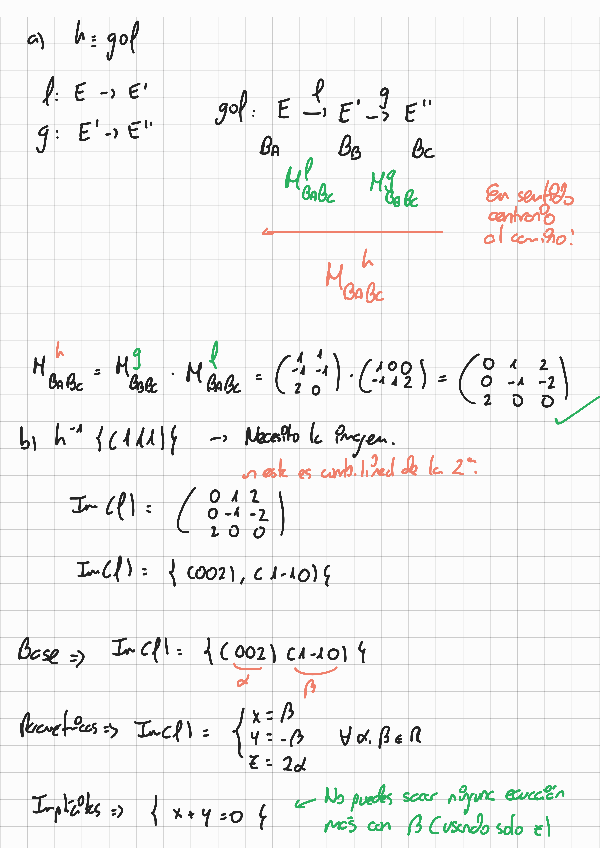 a) h ≡ gof
f: E → E'
g: E' → E''
gof: E →f E' →g E''
BA BB BC
M^f BABC M^g BBBC
En sentido
contrario
al camino!
M^h BABC
M^h BABC = M^g BBBC · M^f BABC = (1 1 / -1 -1 / 2 0) · (1 0 0 / -1 1 2) = (0 1 2 / 0 -1 -2 / 2 0 0)
b) h^-1 {(111)} → Necesito la imagen.
→ este es comb. lineal de la 2ª.
Im(f) = (0 1 2 / 0 -1 -2 / 2 0 0)
Im(f) = {(002), (1-10)}
Base => Im(f) = {(002) (1-10)}
α β
Paramétricas => Im(f) = { x = β
y = -β ∀ α, β ∈ R
z = 2α
Implícitas => { x + y = 0 } ← No puedes sacar ninguna ecuación
más con β (usando solo z)